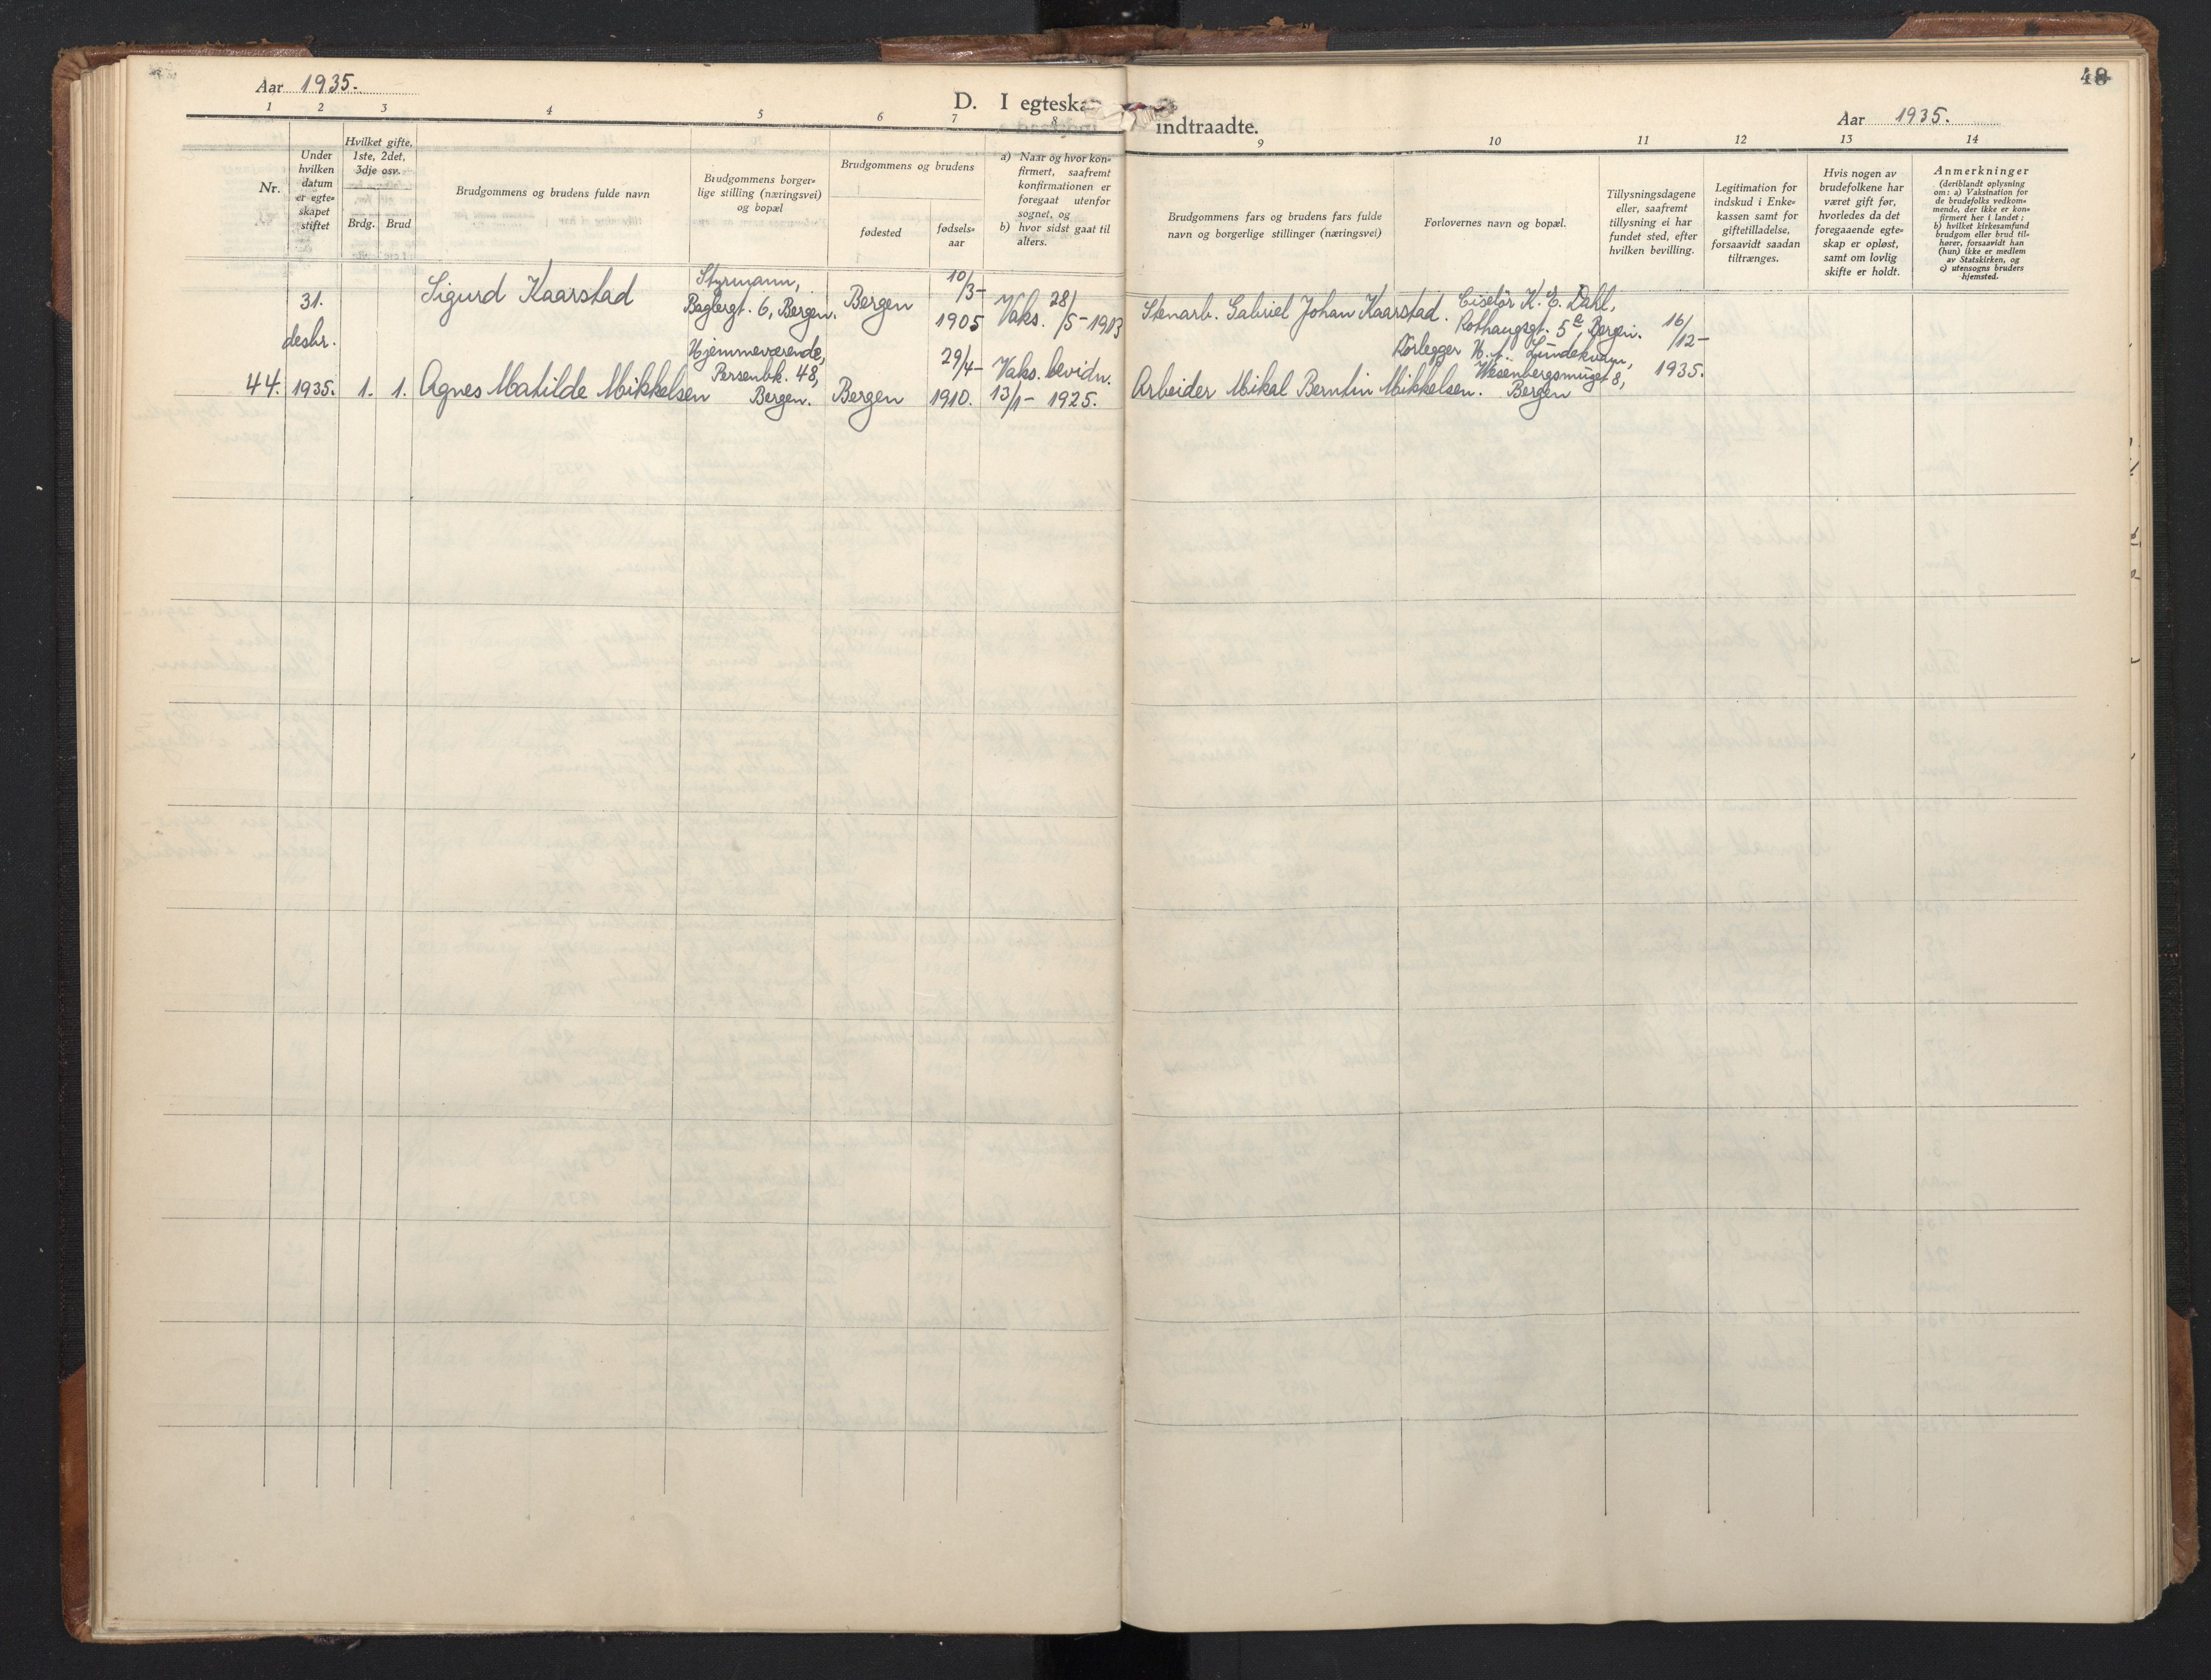 Aar 1935.
D. I egteska
1 2 3 4 5 6 7 8
Nr.
Under hvilken datum er egte- skapet stiftet
Hvilket gifte, 1ste, 2det, 3dje osv.
Brdg. Brud
Brudgommens og brudens fulde navn
Brudgommens borger- lige stilling (næringsvei) og bopæl
Brudgommens og brudens
fødested
fødsels- aar
a) Naar og hvor kon- firmert, saafremt konfirmationen er foregaat utenfor sognet, og
b) hvor sidst gaat til alters.
44.
31. desbr. 1935.
1. 1.
Sigurd Kaarstad
Styrmann,
Baglergt. 6, Bergen.
Bergen
10/3-
1905
Vaks. 28/5-1913
Agnes Matilde Mikkelsen
Hjemmeværende,
Persenbk. 48,
Bergen.
Bergen
29/4-
1910.
Vaks. bevidn.
13/1- 1925.
48
indtraadte.
Aar 1935.
9 10 11 12 13 14
Brudgommens fars og brudens fars fulde navn og borgerlige stillinger (næringsvei)
Forlovernes navn og bopæl.
Tillysningsdagene eller, saafremt tillysning ei har fundet sted, efter hvilken bevilling.
Legitimation for indskud i Enke- kassen samt for giftetilladelse, forsaavidt saadan tiltrænges.
Hvis nogen av brudefolkene har været gift før, hvorledes da det foregaaende egte- skap er opløst, samt om lovlig skifte er holdt.
Anmerkninger
(deriblandt oplysning om: a) Vaksination for de brudefolks vedkom- mende, der ikke er kon- firmert her i landet; b) hvilket kirkesamfund brudgom eller brud til- hører, forsaavidt han (hun) ikke er medlem av Statskirken, og c) utensogns bruders hjemsted.
Stenarb. Gabriel Johan Kaarstad.
Ciselør K. E. Dahl,
Rothaugsgt. 5a, Bergen.
16/12-
1935.
Arbeider Mikal Berntin Mikkelsen.
Rørlegger Lundekvam,
Wesenbergsmuget 8,
Bergen